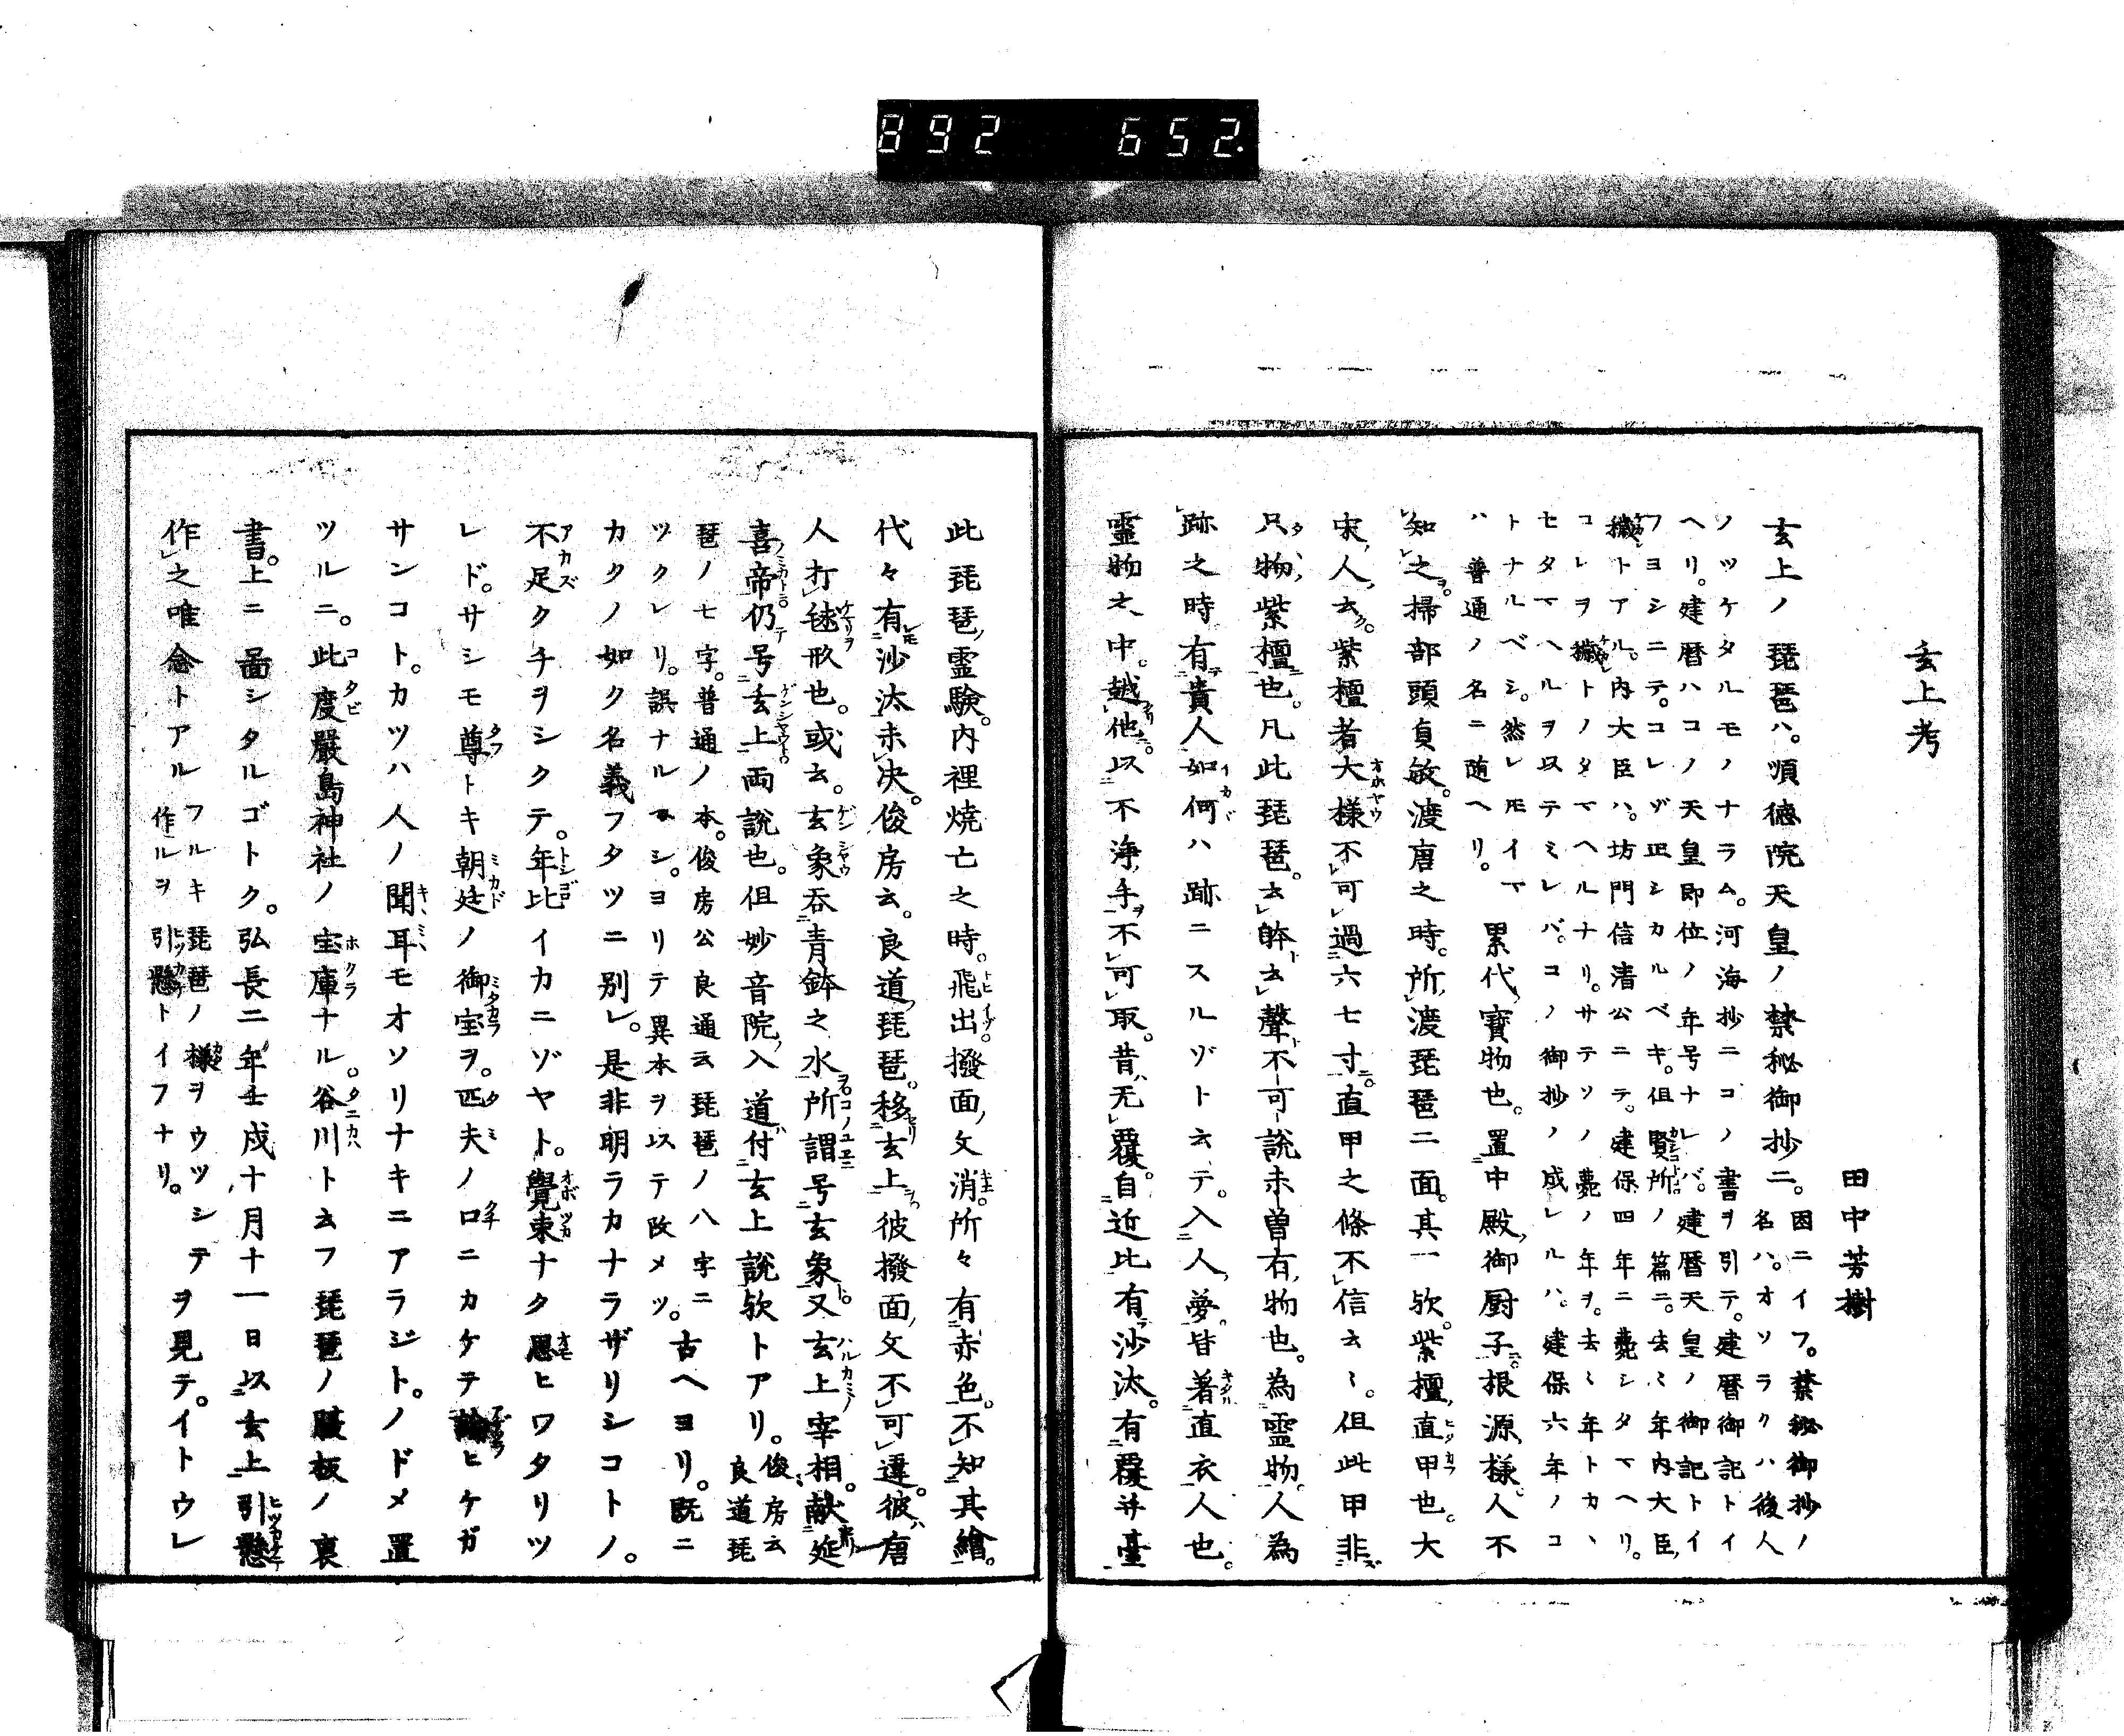 892 652.
玄上考
田中芳樹
玄上ノ琵琶ハ。順徳院天皇ノ禁秘御抄ニ。因ニイフ。禁秘御抄ノ
名ハ。オソラクハ後人
ノツケタルモノナラム。河海抄ニコノ書ヲ引テ。建暦御記トイ
ヘリ。建暦ハコノ天皇即位ノ年号ナレバ。建暦天皇ノ御記トイ
フヨシニテ。コレゾ正シカルベキ。但賢所ノ篇ニ。去々年内大臣
穢トアル。内大臣ハ。坊門信清公ニテ。建保四年ニ薨シタマヘリ。
コレヲ穢トノタマヘルナリ。サテソノ薨ノ年ヲ。去々年トカヽ
セタマヘルヲ以テミレバ。コノ御抄ノ成レルハ。建保六年ノコ
トナルベシ。然レ𪜈イマ
ハ普通ノ名ニ随ヘリ。
累代寶物也。置中殿御厨子。根源様。人不
知之。掃部頭貞敏。渡唐之時。所渡琵琶二面。其一欤。紫檀直甲也。大
宋人云。紫檀者大様不可過六七寸。直甲之條不信云々。但此甲非
只物紫檀也。凡此琵琶。云躰云聲不可說未曽有物也。為靈物。人為
跡之時有貴人如何ハ跡ニスルゾト云テ。入人夢。皆著直衣人也。
靈物之中。越他。以不浄手不可取。昔无覆。自近比有沙汰。有覆并臺
此琵琶靈驗。内裡焼亡之時。飛出。撥面文消。所々有赤色。不知其繪。
代々有沙汰未决。俊房云。良道琵琶。移玄上。彼撥面文不可違。彼唐
人打毬形也。或云。玄象吞青鉢之水所謂号玄象。又玄上宰相。献延
喜帝仍号玄上両說也。但妙音院入道付玄上說欤トアリ。俊房云
良道琵
琶ノ七字。普通ノ本。俊房公良通云琵琶ノ八字ニ
ツクレリ。誤ナルベシ。ヨリテ異本ヲ以テ改メツ。
古ヘヨリ。既ニ
カクノ如ク名義フタツニ別レ。是非明ラカナラザリシコトノ。
不足クチヲシクテ。年比イカニゾヤト。覺束ナク思ヒワタリツ
レド。サシモ尊トキ朝廷ノ御宝ヲ。匹夫ノ口ニカケテ論ヒケガ
サンコト。カツハ人ノ聞耳モオソリナキニアラジト。ノドメ置
ツルニ。此度嚴島神社ノ宝庫ナル。谷川ト云フ琵琶ノ腹板ノ裏
書。上ニ啚シタルゴトク。弘長二年壬戌十月十一日以玄上引懸
作之唯念トアルフルキ琵琶ノ様ヲウツシテ
作ルヲ引懸トイフナリ。
ヲ見テ。イトウレ